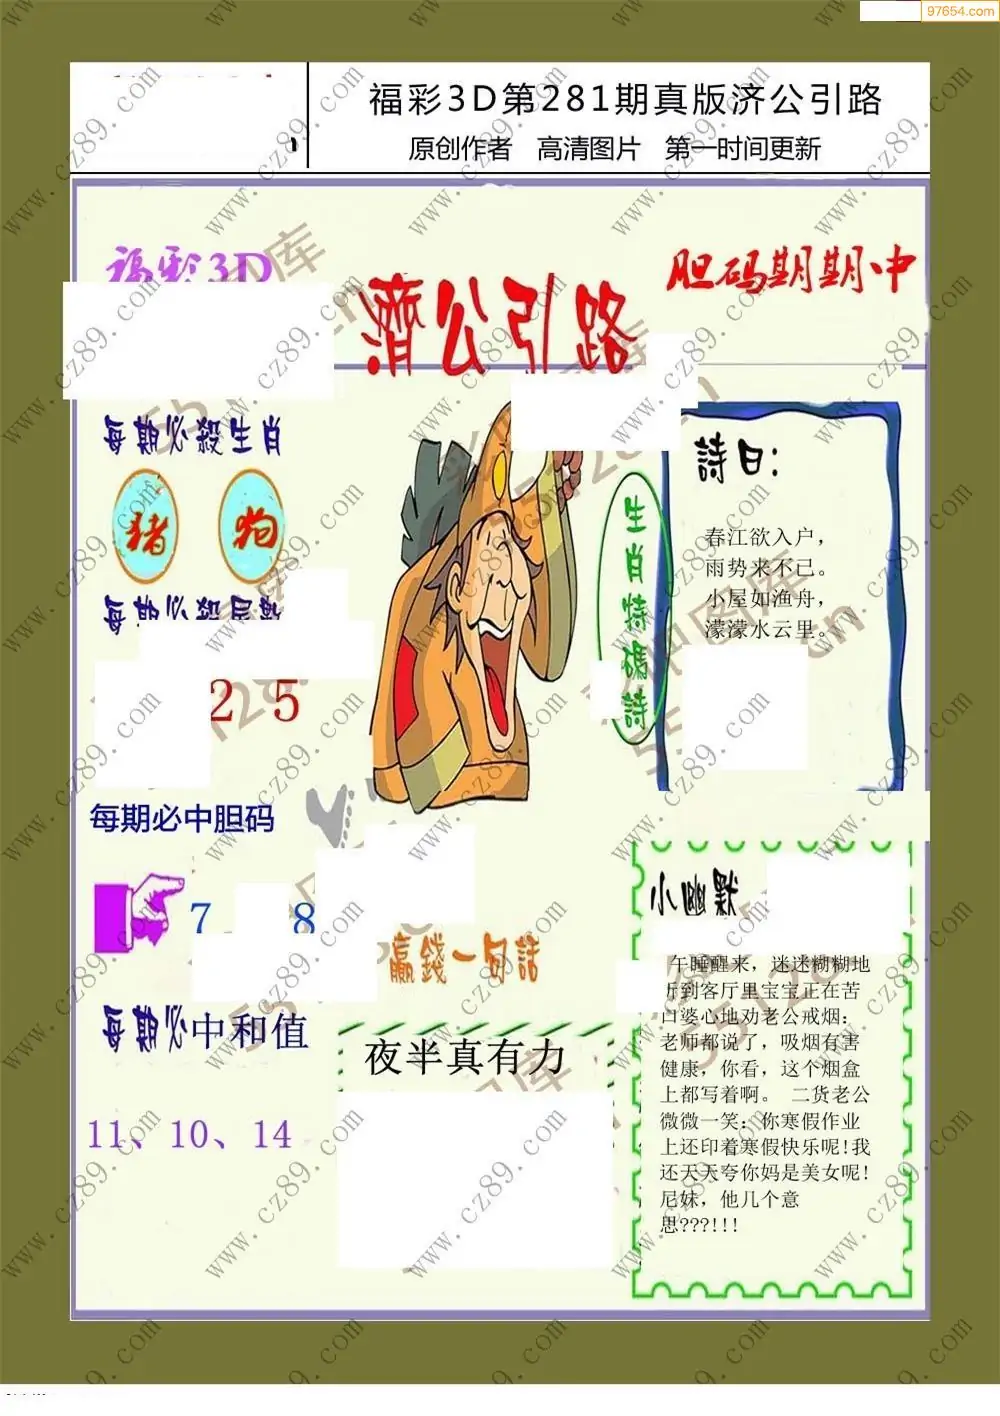 97654.com
福彩3D第281期真版济公引路
原创作者 高清图片 第一时间更新
福彩3D
濟公引路
胆码期期中
每期必殺生肖
猪 狗
每期必殺尾數
2 5
生肖特碼詩
詩曰:
春江欲入户，
雨势来不已。
小屋如渔舟，
濛濛水云里。
每期必中胆码
7 8
赢錢一句話
夜半真有力
每期必中和值
11、10、14
小幽默
午睡醒来，迷迷糊糊地
到客厅里宝宝正在苦
口婆心地劝老公戒烟：
老师都说了，吸烟有害
健康，你看，这个烟盒
上都写着啊。 二货老公
微微一笑：你寒假作业
上还印着寒假快乐呢!我
还天天夸你妈是美女呢!
尼妹，他几个意
思???!!!
www.cz89.com